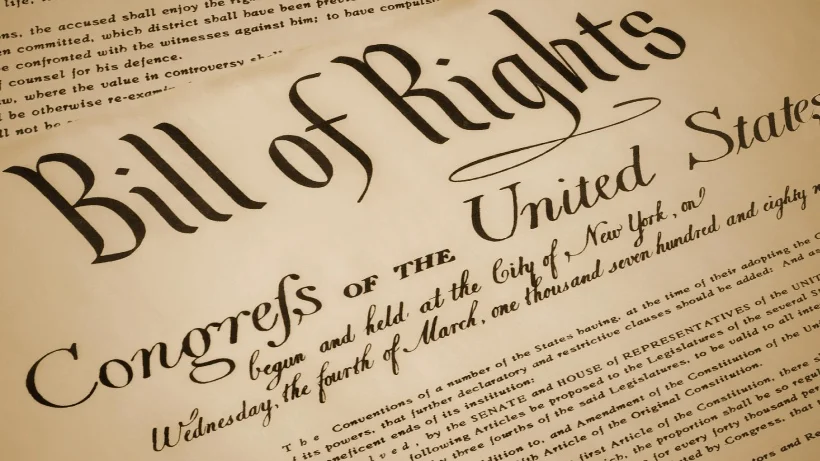 life,
the accused shall enjoy the
committed, which district shall have been
be confronted with the witnesses against him; to have
counsel for his defence.
where the value in controversy
be otherwise
not be
Bill of Rights
Congreſs OF THE United States
begun and held at the City of New York, on
Wednesday, the fourth of March, one thousand seven hundred and eighty
The Conventions of a number of the States having, at the time of their adopting the
its powers, that further declaratory and restrictive clauses should be added: And
ends of its institution:
by the SENATE and HOUSE of REPRESENTATIVES of the
following Articles be proposed to the Legislatures of the several
three fourths of the said Legislatures, to be valid to all
to, and Amendment of the Constitution of the
Article of the Original Constitution.
first Article of the Constitution, there
the proportion shall be so
for every forty thousand
by Congress, that
and